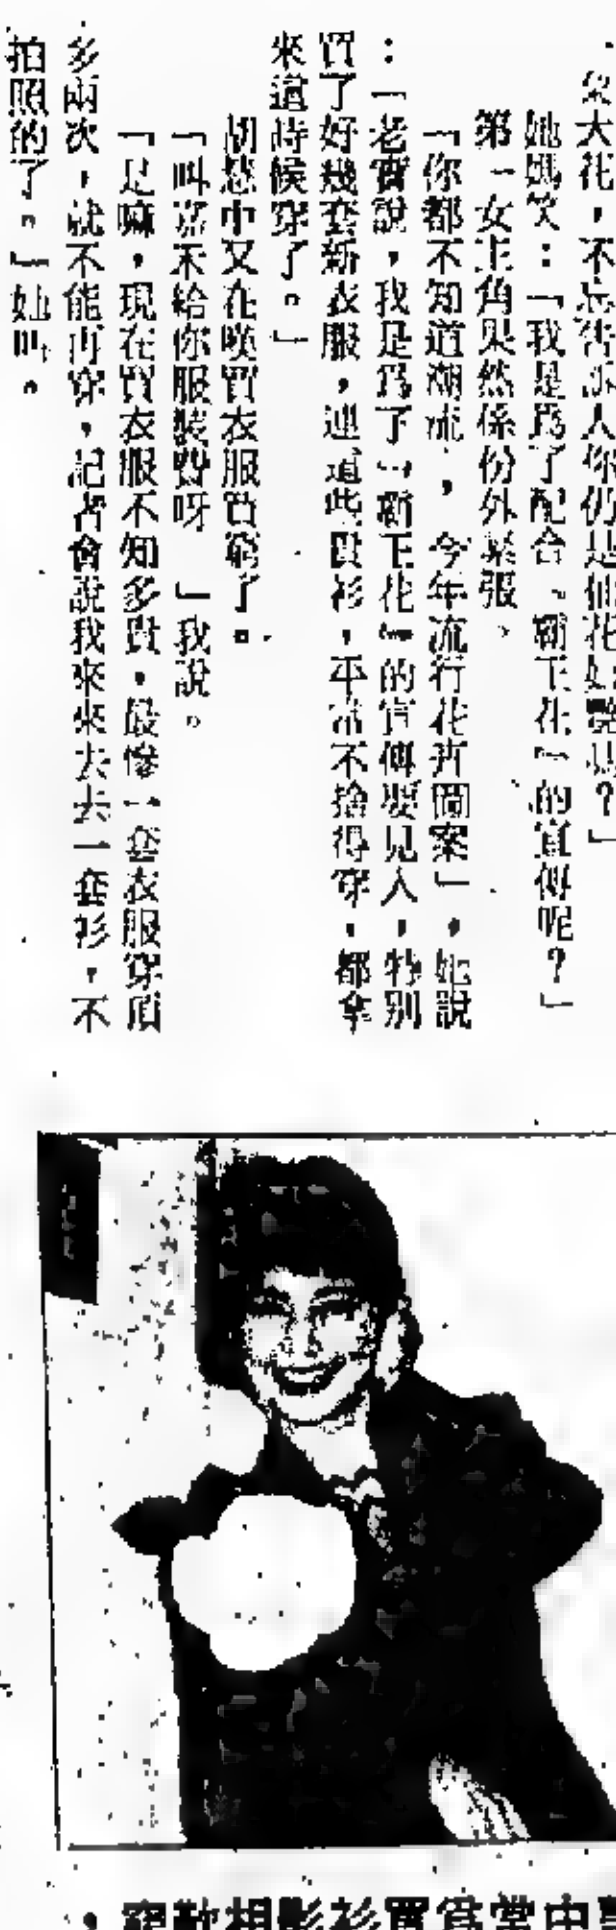 朵大花，不忘告訴人你仍是仙花
她嫣笑：「我是爲了配合『霸王花』的宣傳呢？」
第一女主角果然係份外緊張。
「你都不知道潮流，今年流行花卉圖案」，她說
：「老實說，我是爲了『霸王花』的宣傳要見人，特別
買了好幾套新衣服，連這些貴衫，平常不捨得穿，都拿
來這時候穿了。」
胡慧中又在嘆買衣服買窮了。
「叫嘉禾給你服裝費呀」我說。
「是嘛，現在買衣服不知多貴，最慘一套衣服穿頂
多兩次，就不能再穿，記者會說我來來去去一套衫，不
拍照的了。」她叫。
中常爲買衫影相歎窮，